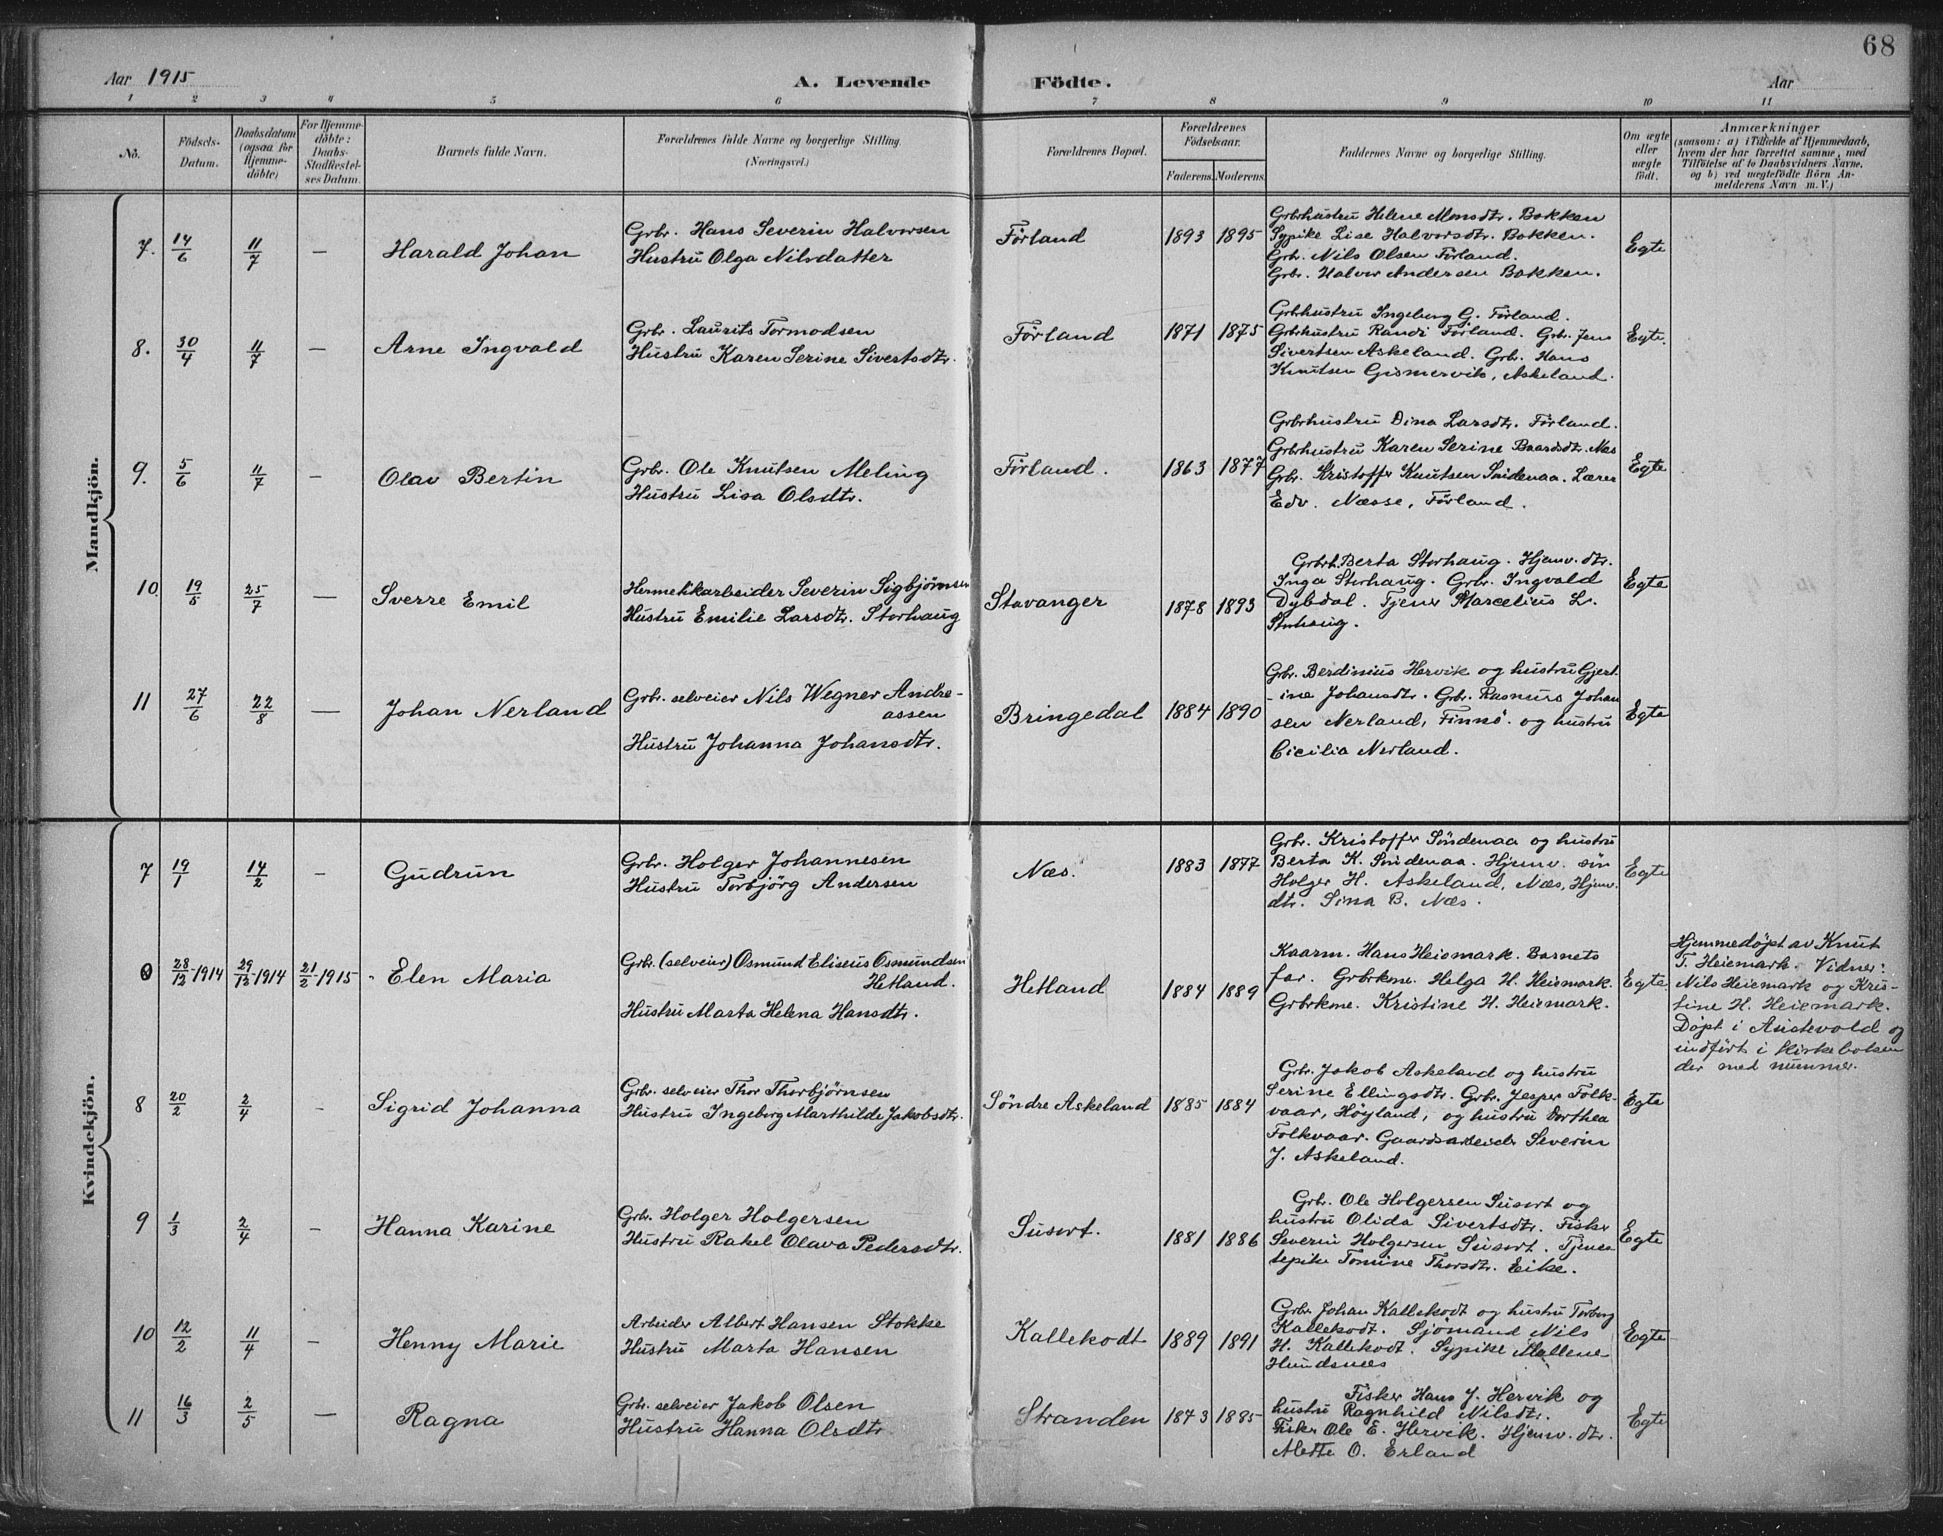 68
Aar 1915 A. Levende Födte. Aar
1 2 3 4 5 6 7 8 9 10 11
No.
Födsels-
Datum.
Daabsdatum
(ogsaa for
Hjemme-
döbte)
For Hjemme-
döbte:
Daabs-
Stadfæstel-
ses Datum.
Barnets fulde Navn.
Forældrenes fulde Navne og borgerlige Stilling.
(Næringsvei.)
Forældrenes Bopæl.
Forældrenes
Födselsaar.
Faderens. Moderens.
Faddernes Navne og borgerlige Stilling.
Om ægte
eller
uægte
født.
Anmærkninger
(saasom: a) i Tilfælde af Hjemmedaab,
hvem der har forrettet samme, med
Tilföielse af to Daabsvidners Navne.
og b) ved uægtefödte Börn An-
melderens Navn m. V.)
Mandkjön.
7. 14/6 11/7 — Harald Johan
Grbr. Hans Severin Halvorsen
Hustru Olga Nilsdatter
Førland 1893 1895
Grbrhustru Helene Monsdtr. Bokken
Sypike Lise Halvorsdtr. Bokken.
Grbr. Nils Olsen Førland.
Grbr. Halvor Andersen Bokken.
Egte
8. 30/4 11/7 — Arne Ingvald
Grbr. Laurits Tormodsen
Hustru Karen Serine Sivertsdtr.
Førland 1871 1875
Grbrhustru Ingeborg G. Førland.
Grbrhustru Randi Førland. Grbr. Jens
Sivertsen Askeland. Grbr. Hans
Knutsen Gismervik, Askeland.
Egte.
9. 5/6 11/7 — Olav Bertin
Grbr. Ole Knutsen Meling
Hustru Lisa Olsdtr.
Førland. 1863 1877
Grbrhustru Dina Larsdtr. Førland.
Grbrhustru Karen Serine Baardsdtr. Næs
Grbr. Kristoffer Knutsen Søndenaa. Lærer
Edv. Næsse, Førland.
Egte
10 19/5 25/7 — Sverre Emil
Hermetikarbeider Severin Sigbjørnsen
Hustru Emilie Larsdtr. Storhaug
Stavanger 1878 1893
Grbrh. Berta Storhaug. Hjemv. dtr.
Inga Storhaug. Grbr. Ingvald
Dybdal. Tjener Marcelius L.
Storhaug.
Egte
11 27/6 22/8 — Johan Nerland
Grbr. selveier Nils Wegner Andre-
assen
Hustru Johanna Johansdtr.
Bringedal 1884 1890
Grbr. Berdinius Hervik og hustru Gjert
-ine Johansdtr. Grbr. Rasmus Johan
sen Nerland, Finnø. og hustru
Cicilia Nerland.
Egte
Kvindekjön.
7 19/1 14/2 - Gudrun
Grbr. Holger Johannesen
Hustru Torbjörg Andersen
Næs. 1883 1877
Grbr. Kristoffer Søndenaa og hustru
Berta K. Søndenaa. Hjemv. søn
Holger H. Askeland, Næs, Hjemv.
dtr. Sina B. Næs.
Egte
0 28/12 1914 29/12 1914 21/2 1915 - Elen Maria
Grbr. (selveier) Osmund Eliseus Osmundsen
Hetland.
Hustru Marta Helena Hansdtr.
Hetland 1884 1889
Kaarm. Hans Heiemark. Barnets
far. Grbrkme. Helga H. Heiemark.
Grbrkme. Kristine H. Heiemark.
Egte
Hjemmedøpt av Knut
T. Heiemark. Vidner:
Nils Heiemark og Kris-
tine H. Heiemark.
Døpt i Austevold og
indført i kirkeboken
der med nummer.
8 20/2 2/4 - Sigrid Johanna
Grbr. selveier Thor Thorbjørnsen
Hustru Ingeborg Marthilde Jakobsdtr.
Søndre Askeland 1885 1884
Grbr. Jakob Askeland og hustru
Serine Ellingsdtr. Grbr. Jesper Folk-
vaar, Höyland, og hustru Dorthea
Folkvaar. Gaardsarbeider Severin
J. Askeland.
Egte
9 1/3 2/4 — Hanna Karine
Grbr. Holger Holgersen
Hustru Rakel Olava Pedersdtr.
Susort. 1881 1886
Grbr. Ole Holgersen Susort og
hustru Olida Sivertsdtr. Fisker
Severin Holgersen Susort. Tjenes
tepike Tomine Thorsdtr. Eike.
Egte
10 12/2 11/4 — Henny Marie
Arbeider Albert Hansen Stokke
Hustru Marta Hansen
Kallekodt 1889 1891
Grbr. Johan Kallekodt og hustru Torborg
Kallekodt. Sjömand Nils
H. Kallekodt. Sypike Mallene
Hundsnes
Egte
11 16/3 2/5 — Ragna
Grbr. selveier Jakob Olsen
Hustru Hanna Olsdtr.
Stranden 1873 1885
Fisker Hans J. Hervik og
hustru Ragnhild Nilsdtr.
Fisker Ole E. Hervik. Hjemv. dtr.
Mette O. Erland
Egte